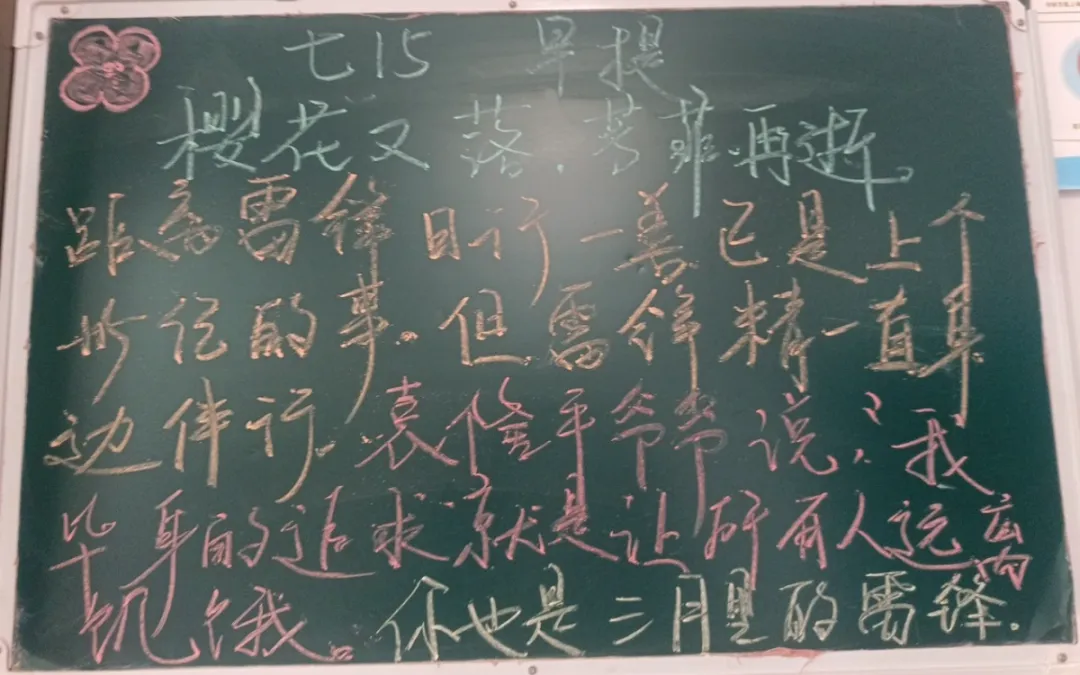 七15 早提
樱花又落.芳菲再逝。
距离雷锋日行一善已是上个
世纪的事.但雷锋精一直身
边伴行.袁隆平爷爷说:我
毕身的追求就是让所有人远离
饥饿。你也是三月里的雷锋.